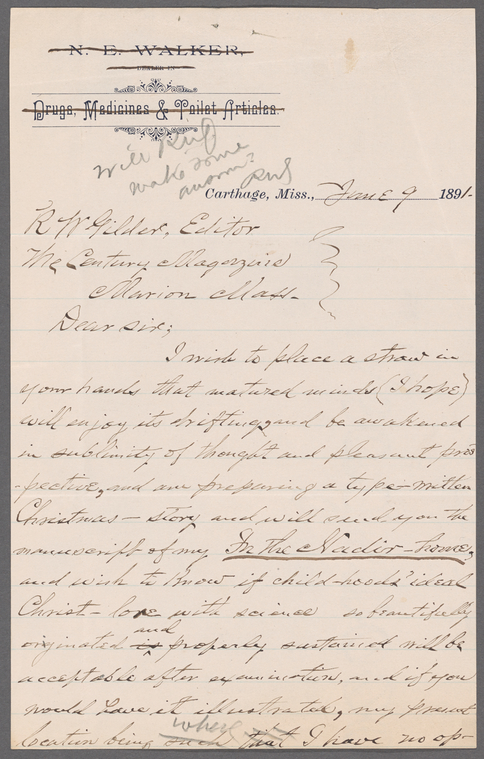 N. E. WALKER,
DEALER IN
Drugs, Medicines & Toilet Articles.
Will
make some
Carthage, Miss., June 9 1891-
R W Gilder, Editor
The Century Magazine
Marion Mass-
Dear sir;
I wish to place a straw in
your hands that matured minds (I hope)
will enjoy its drifting, and be awakened
in sublimity of thought and pleasant pros
-pective, and am preparing a type-written
Christmas-story and will send you the
manuscript of my In the Nadir-home,
and wish to know if child-hoods' ideal
Christ-love with science so beautifully
originated is and properly sustained will be
acceptable after examination, and if you
would have it illustrated, my present
location being such that where I have no op-